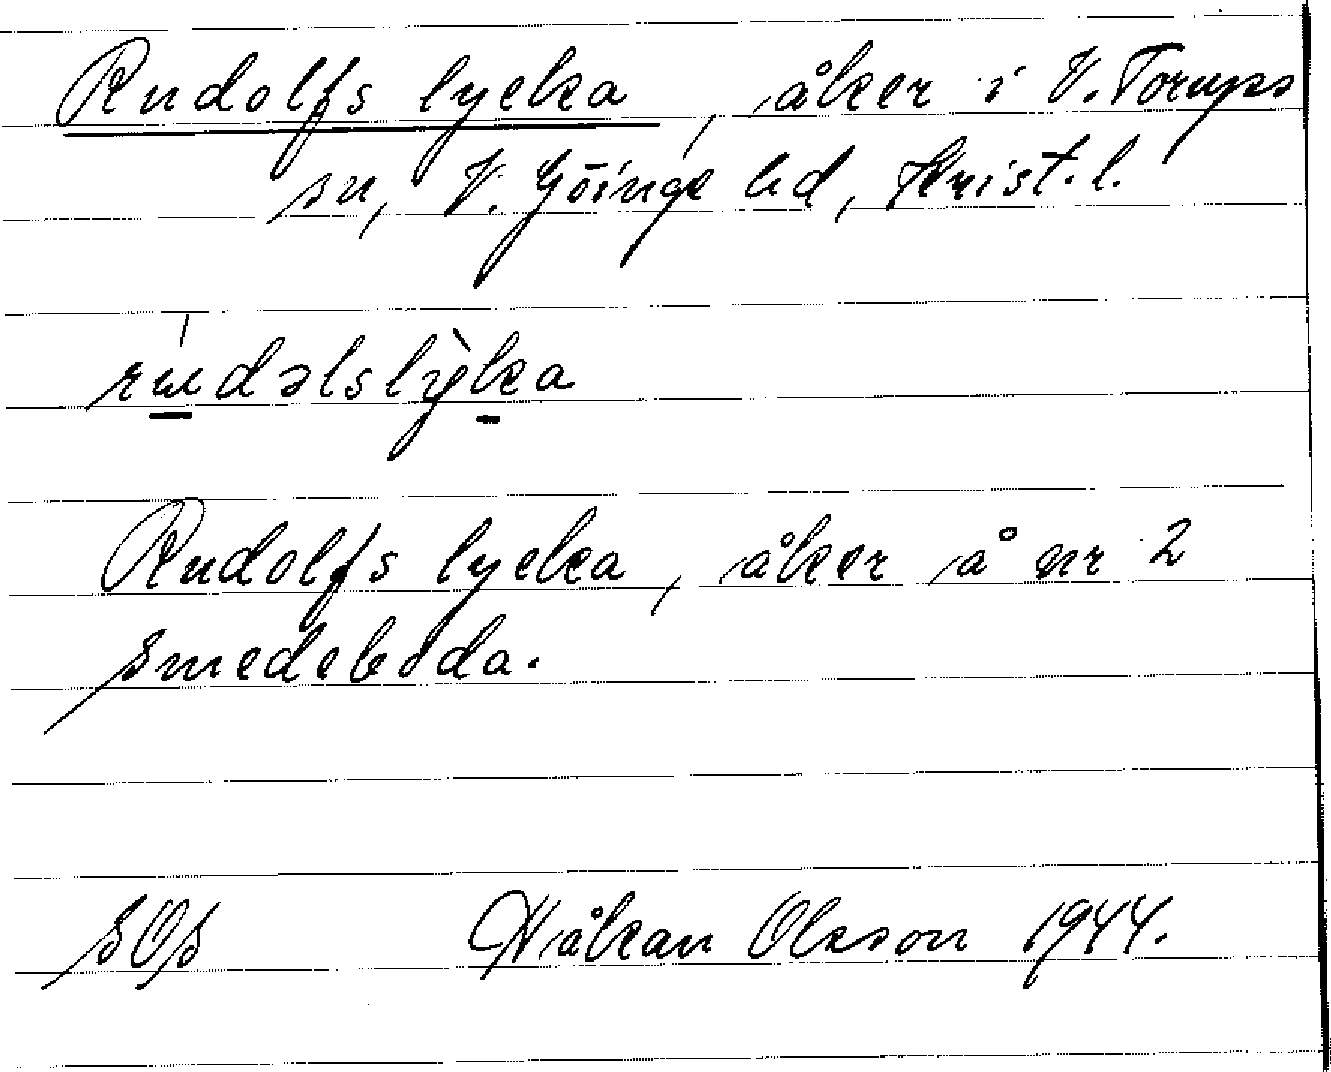 Rudolfs lycka, åker i V. Torups
sn, V. Göinge hd, Krist. l.
rúdəlslỳka
Rudolfs lycka, åker å nr 2
Smedeboda.
SOS Håkan Olsson 1944.